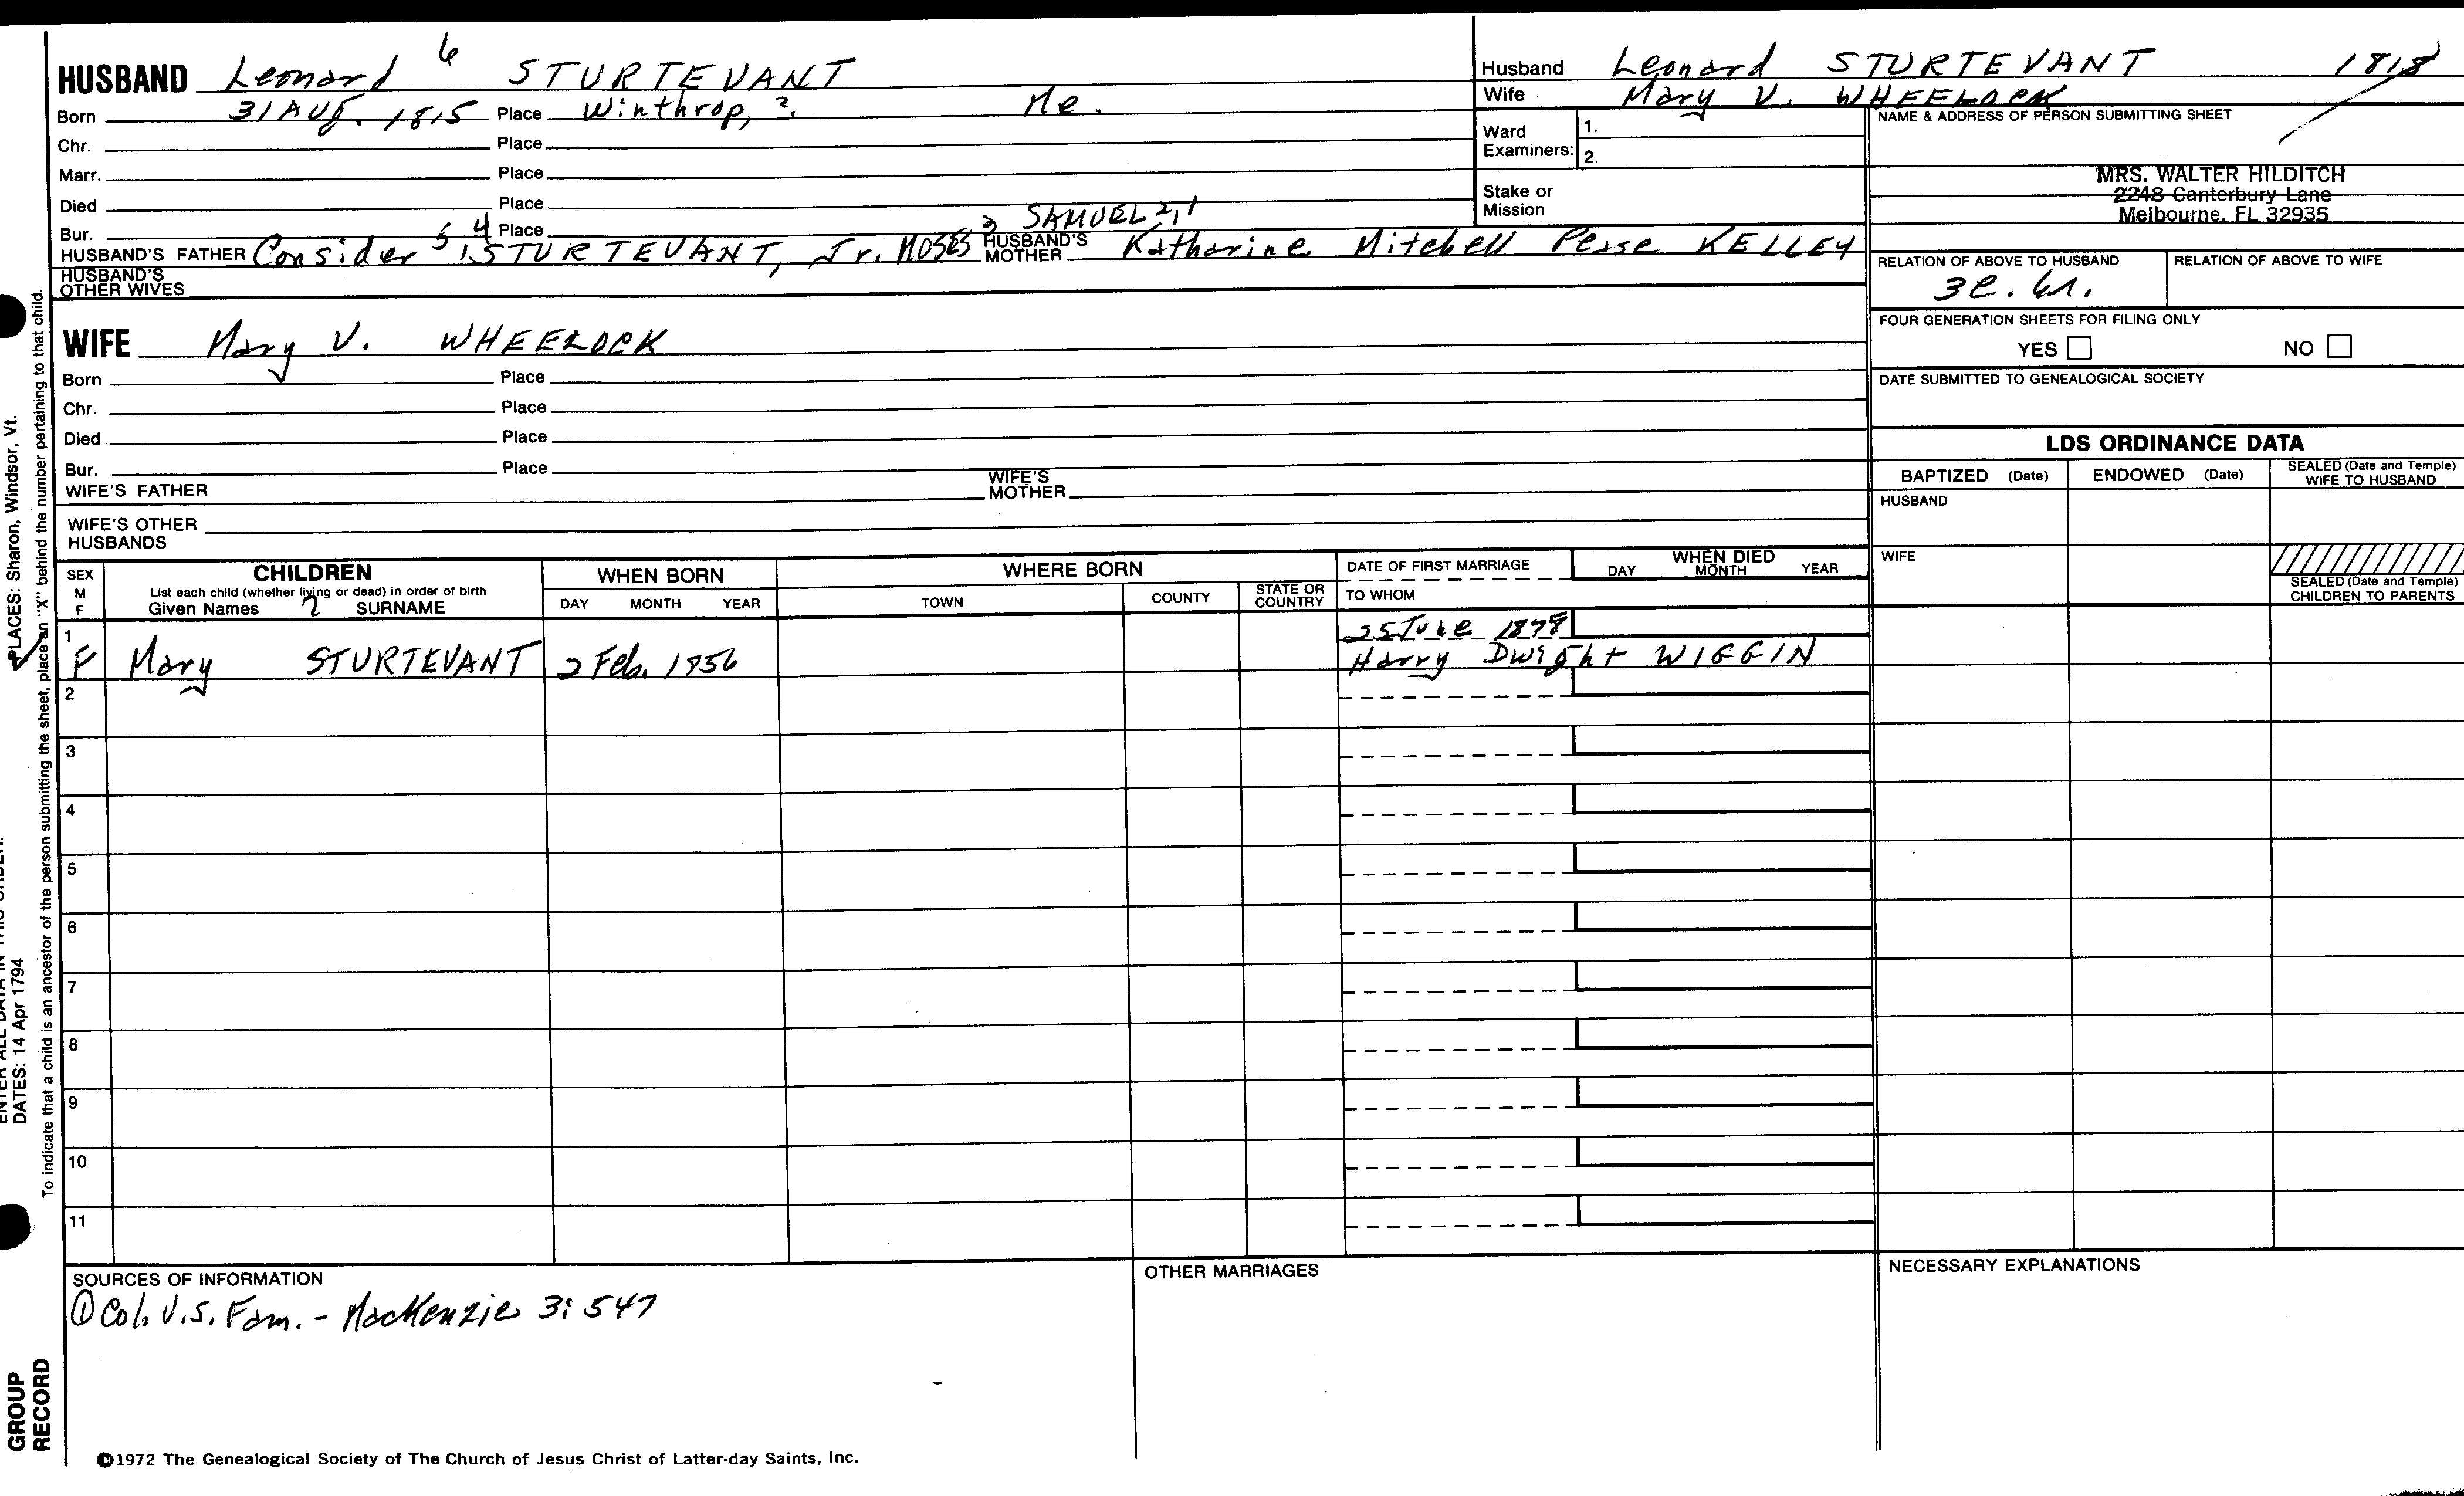 HUSBAND Leonard 6 STURTEVANT
Born 31 Aug. 1815 Place Winthrop, ?. Me.
Chr. Place
Marr. Place
Died Place
Bur. Place
HUSBAND'S FATHER Consider 5 STURTEVANT, Jr. 4 MOSES 3 SAMUEL 2,1 HUSBAND'S MOTHER Katharine Mitchell Pesse KELLEY
HUSBAND'S OTHER WIVES
WIFE Mary V. WHEELOCK
Born Place
Chr. Place
Died Place
Bur. Place
WIFE'S FATHER WIFE'S MOTHER
WIFE'S OTHER HUSBANDS
Husband Leonard STURTEVANT 1818
Wife Mary V. WHEELOCK
Ward Examiners: 1.
2.
Stake or Mission
NAME & ADDRESS OF PERSON SUBMITTING SHEET
MRS. WALTER HILDITCH
2248 Canterbury Lane
Melbourne, FL 32935
RELATION OF ABOVE TO HUSBAND RELATION OF ABOVE TO WIFE
3c. 4r.
FOUR GENERATION SHEETS FOR FILING ONLY
YES NO
DATE SUBMITTED TO GENEALOGICAL SOCIETY
LDS ORDINANCE DATA
BAPTIZED (Date) ENDOWED (Date) SEALED (Date and Temple) WIFE TO HUSBAND
HUSBAND
WIFE
SEALED (Date and Temple) CHILDREN TO PARENTS
SEX M F
CHILDREN
List each child (whether living or dead) in order of birth
Given Names 7 SURNAME
WHEN BORN
DAY MONTH YEAR
WHERE BORN
TOWN COUNTY STATE OR COUNTRY
DATE OF FIRST MARRIAGE
TO WHOM
WHEN DIED
DAY MONTH YEAR
1 F Mary STURTEVANT 2 Feb. 1856 25 June 1878
Harry Dwight WIGGIN
2
3
4
5
6
7
8
9
10
11
SOURCES OF INFORMATION
① Col. U.S. Fam. - MacKenzie 3: 547
OTHER MARRIAGES
NECESSARY EXPLANATIONS
©1972 The Genealogical Society of The Church of Jesus Christ of Latter-day Saints, Inc.
PLACES: Sharon, Windsor, Vt.
ENTER ALL DATA IN THIS ORDER:
DATES: 14 Apr 1794
To indicate that a child is an ancestor of the person submitting the sheet, place an "X" behind the number pertaining to that child.
GROUP RECORD